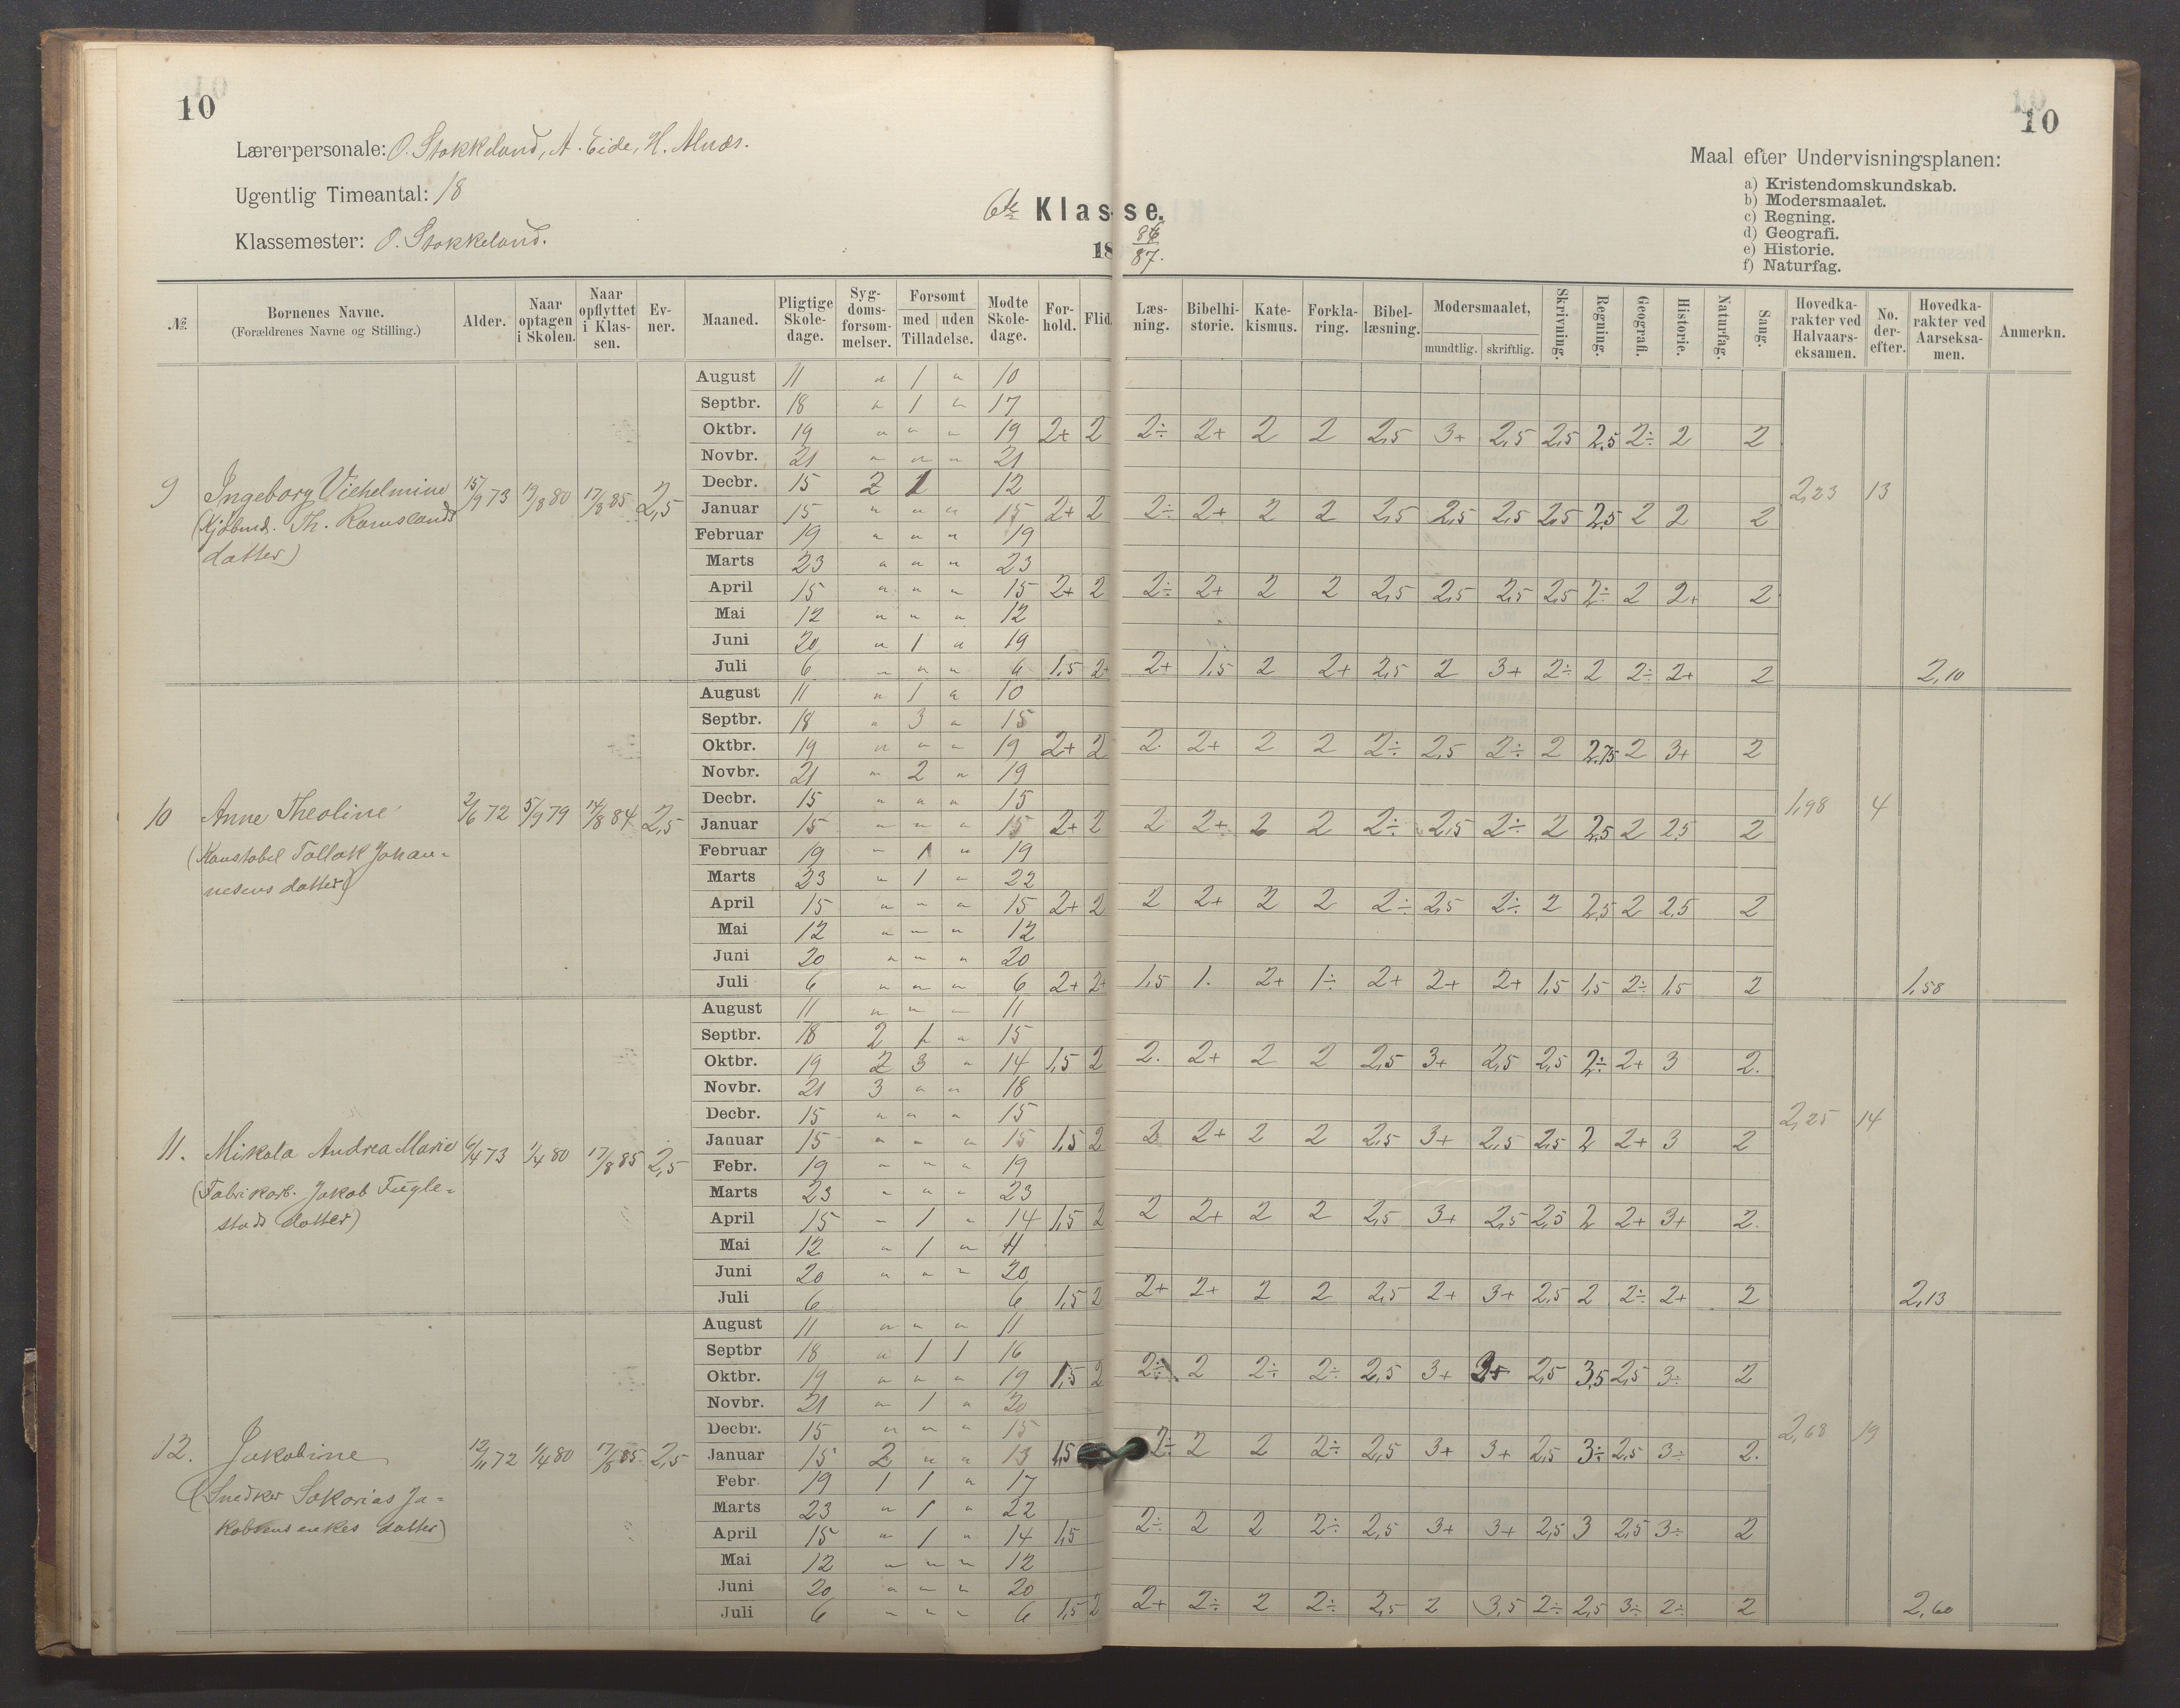 10
10
Lærerpersonale: O. Stokkeland, A. Eide, H. Alnæs.
Ugentlig Timeantal: 18
Klassemester: O. Stokkeland.
6te Klasse.
1886/87.
Maal efter Undervisningsplanen:
a) Kristendomskundskab.
b) Modersmaalet.
c) Regning.
d) Geografi.
e) Historie.
f) Naturfag.
№ Børnenes Navne. (Forældrenes Navne og Stilling.) Alder. Naar optagen i Skolen. Naar opflyttet i Klassen. Evner. Maaned. Pligtige Skoledage. Sygdomsforsømmelser. Forsømt med uden Tilladelse. Mødte Skoledage. Forhold. Flid. Læsning. Bibelhistorie. Katekismus. Forklaring. Bibellæsning. Modersmaalet, mundtlig. skriftlig. Skrivning. Regning. Geografi. Historie. Naturfag. Sang. Hovedkarakter ved Halvaarseksamen. No. derefter. Hovedkarakter ved Aarseksamen. Anmerkn.
9 Ingeborg Vilhelmine 15/9 73 19/8 80 17/8 85 2,5
(Kjøbmd. Th. Ramslands
datter)
August 11 " 1 " 10
Septbr. 18 " 1 " 17
Oktbr. 19 " " " 19 2+ 2 2÷ 2+ 2 2 2,5 3+ 2,5 2,5 2,5 2÷ 2 2
Novbr. 21 " " " 21
Decbr. 15 2 1 12 2,23 13
Januar 15 " " " 15 2+ 2 2÷ 2+ 2 2 2,5 2,5 2,5 2,5 2,5 2 2 2
Februar 19 " " " 19
Marts 23 " " " 23
April 15 " " " 15 2+ 2 2÷ 2+ 2 2 2,5 2,5 2,5 2,5 2÷ 2 2+ 2
Mai 12 " " " 12
Juni 20 " 1 " 19
Juli 6 " " " 6 1,5 2+ 2+ 1,5 2 2+ 2,5 2 3+ 2÷ 2 2÷ 2+ 2 2,10
10 Anne Theoline 2/6 72 5/9 79 14/8 84 2,5
(Konstabel Tollak Johan-
nesens datter)
August 11 " 1 " 10
Septbr. 18 " 3 " 15
Oktbr. 19 " " " 19 2+ 2 2. 2+ 2 2 2÷ 2,5 2÷ 2 2,75 2 3+ 2
Novbr. 21 " 2 " 19
Decbr. 15 " " " 15 1,98 4
Januar 15 " " " 15 2+ 2 2 2+ 2 2 2÷ 2,5 2÷ 2 2,5 2 2,5 2
Februar 19 " 1 " 19
Marts 23 " 1 " 22
April 15 " " " 15 2+ 2 2 2+ 2 2 2÷ 2,5 2÷ 2 2,5 2 2,5 2
Mai 12 " " " 12
Juni 20 " " " 20
Juli 6 " " " 6 2+ 2+ 1,5 1. 2+ 1÷ 2+ 2+ 2+ 1,5 1,5 2÷ 1,5 2 1,58
11. Mikala Andrea Marie 6/4 73 1/4 80 17/8 85 2,5
(Fabrikarb. Jakob Fugle-
stads datter)
August 11 " " " 11
Septbr. 18 2 1 " 15
Oktbr. 19 2 3 " 14 1,5 2 2. 2+ 2 2 2,5 3+ 2,5 2,5 2÷ 2+ 3 2.
Novbr. 21 3 " " 18
Decbr. 15 " " " 15 2,25 14
Januar 15 " " " 15 1,5 2 2 2+ 2 2 2,5 3+ 2,5 2,5 2 2+ 3 2
Febr. 19 " " " 19
Marts 23 " " " 23
April 15 " 1 " 14 1,5 2 2 2+ 2 2 2,5 3+ 2,5 2,5 2 2+ 3+ 2.
Mai 12 " 1 " 11
Juni 20 " " " 20
Juli 6 6 1,5 2 2+ 2+ 2 2 2,5 2+ 3+ 2,5 2 2÷ 2+ 2 2,13
12. Jakobine 12/11 72 1/4 80 17/8 85 2,5
(Snedker Sakarias Ja-
kobsens enkes datter)
August 11 " " " 11
Septbr 18 " 1 1 16
Oktbr. 19 " " " 19 1,5 2 2÷ 2 2÷ 2÷ 2,5 3+ 2,5 3,5 2,5 3÷ 2
Novbr. 21 " 1 " 20
Decbr. 15 " " " 15 2,68 19
Januar 15 2 " " 13 1,5 2÷ 2 2 2÷ 2,5 3+ 3+ 2,5 3÷ 2,5 3÷ 2.
Febr. 19 1 1 " 17
Marts 23 " 1 " 22
April 15 " 1 " 14 1,5 2÷ 2 2 2÷ 2,5 3+ 3+ 2,5 3 2,5 3÷ 2
Mai 12 " " " 12
Juni 20 " " " 20
Juli 6 " " " 6 1,5 2 2+ 2÷ 2 2÷ 2,5 2 3,5 2÷ 2,5 3÷ 2÷ 2 2,60